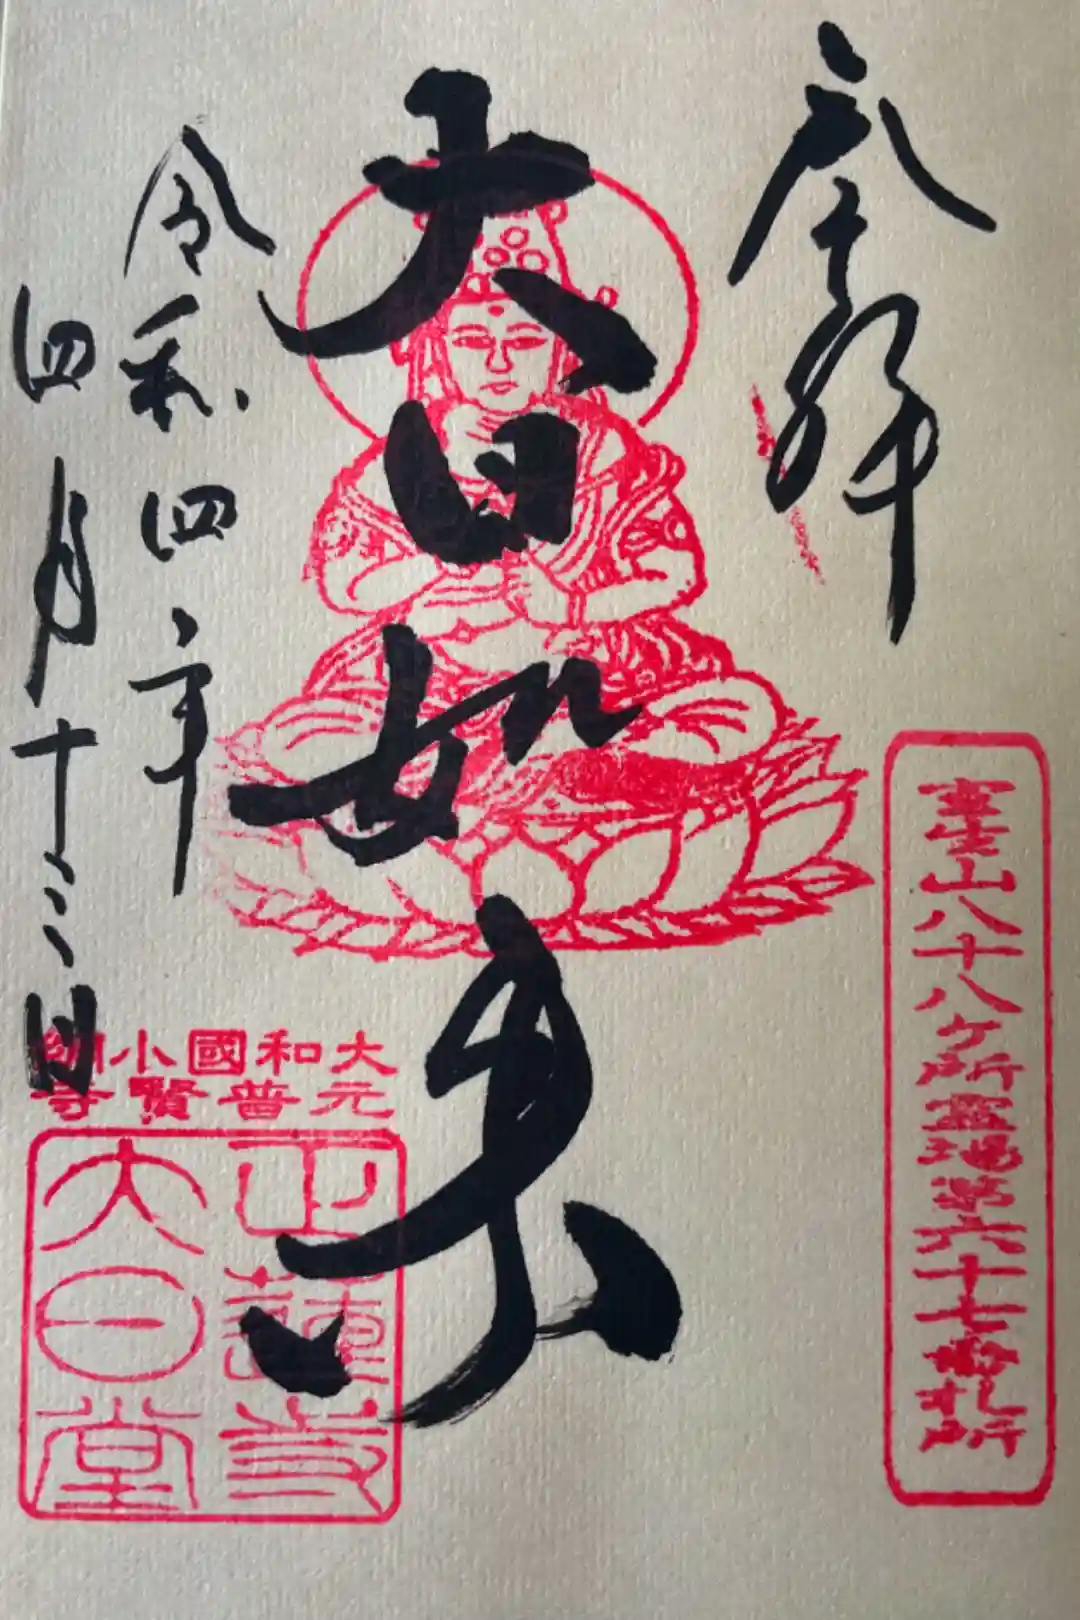 奉拝
室生山八十八ケ所霊場第六十七番札所
大日如来
令和四年
四月十三日
大和國小綱
元普賢寺
正蓮寺
大日堂